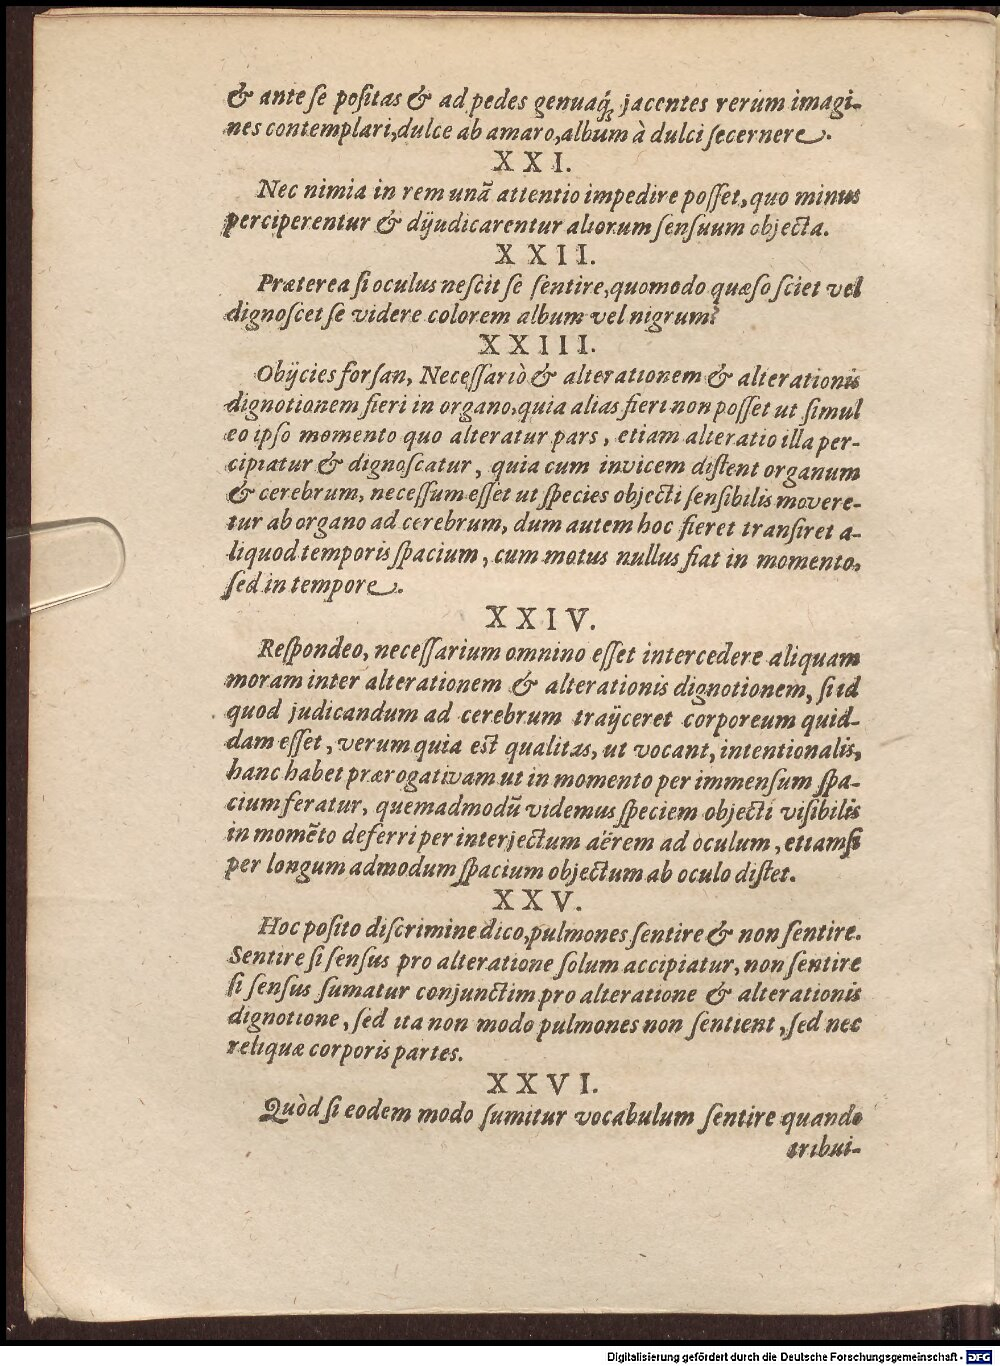 & ante se positas & ad pedes genuaq́ꝫ jacentes rerum imagi-
nes contemplari, dulce ab amaro, album à dulci secernere.
XXI.
Nec nimia in rem unã attentio impedire posset, quo minus
perciperentur & dijudicarentur aliorum sensuum objecta.
XXII.
Præterea si oculus nescit se sentire, quomodo quæso sciet vel
dignoscet se videre colorem album vel nigrum?
XXIII.
Obijcies forsan, Necessariò & alterationem & alterationis
dignotionem fieri in organo, quia alias fieri non posset ut simul
eo ipso momento quo alteratur pars, etiam alteratio illa per-
cipiatur & dignoscatur, quia cum invicem distent organum
& cerebrum, necessum esset ut species objecti sensibilis movere-
tur ab organo ad cerebrum, dum autem hoc fieret transiret a-
liquod temporis spacium, cum motus nullus fiat in momento,
sed in tempore.
XXIV.
Respondeo, necessarium omnino esset intercedere aliquam
moram inter alterationem & alterationis dignotionem, si id
quod judicandum ad cerebrum traijceret corporeum quid-
dam esset, verum quia est qualitas, ut vocant, intentionalis,
hanc habet prærogativam ut in momento per immensum spa-
cium feratur, quemadmodũ videmus speciem objecti visibilis
in momẽto deferri per interjectum aërem ad oculum, etiamsi
per longum admodum spacium objectum ab oculo distet.
XXV.
Hoc posito discrimine dico, pulmones sentire & non sentire.
Sentire si sensus pro alteratione solum accipiatur, non sentire
si sensus sumatur conjunctim pro alteratione & alterationis
dignotione, sed ita non modo pulmones non sentient, sed nec
reliquæ corporis partes.
XXVI.
Quòd si eodem modo sumitur vocabulum sentire quando
tribui-
Digitalisierung gefördert durch die Deutsche Forschungsgemeinschaft - DFG